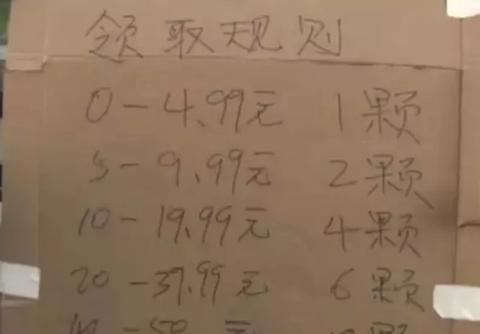 领取规则
0-4.99元 1颗
5-9.99元 2颗
10-19.99元 4颗
20-39.99元 6颗